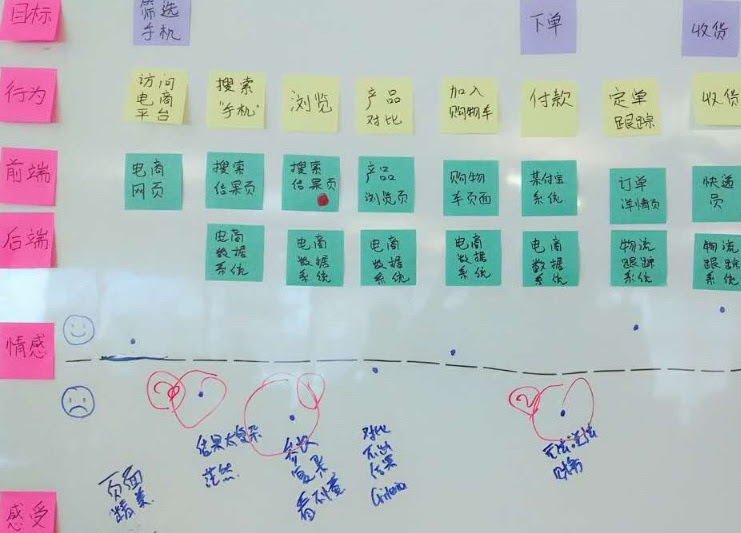 目标
筛选
手机
下单
收货
行为
访问
电商
平台
搜索
"手机"
浏览
产品
对比
加入
购物车
付款
定单
跟踪
收货
前端
电商
网页
搜索
结果页
搜索
结果页
产品
浏览页
购物
车页面
某付宝
系统
订单
详情页
快递
员
后端
电商
数据
系统
电商
数据
系统
电商
数据
系统
电商
数据
系统
电商
数据
系统
物流
跟踪
系统
物流
跟踪
系统
情感
2
1
2
结果太复杂
茫然
参数
复杂
看不懂
对比
不出
结果
无法说法
页面
精美
感受